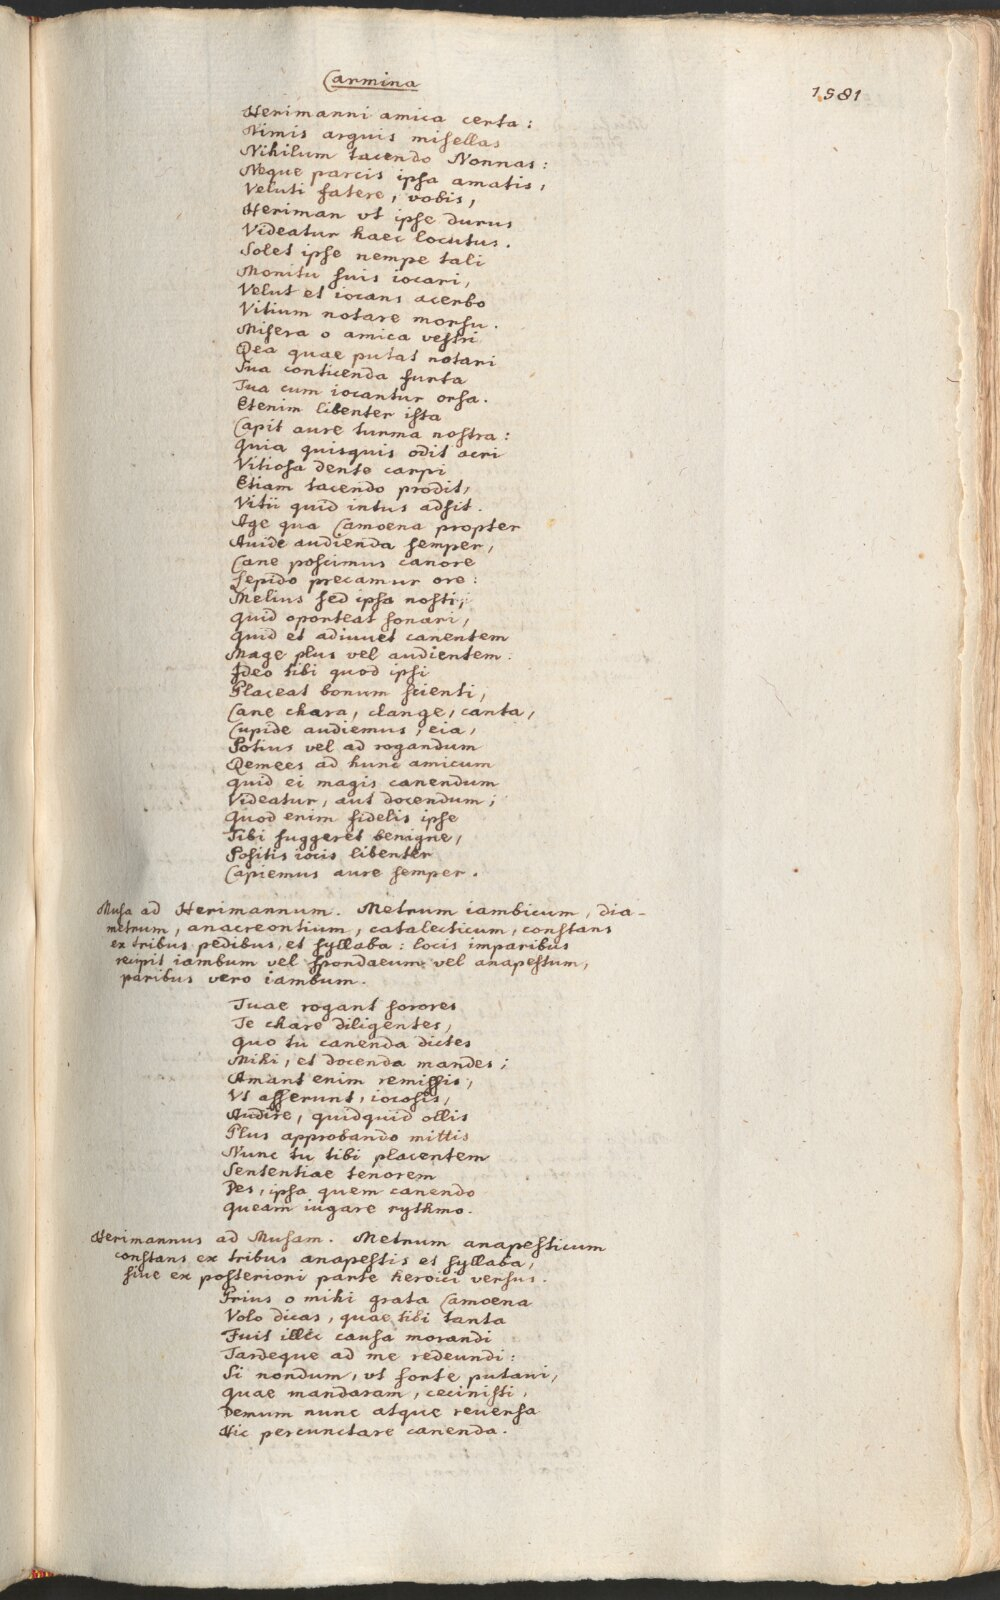 Carmina
1581
Herimanni amica certa:
Nimis arguis misellas
Nihilum tacendo Nonnas:
Neque parcis ipsa amatis,
Veluti fatere, vobis,
Heriman vt ipse durus
Videatur haec locutus.
Solet ipse nempe tali
Monitu suis iocari,
Velut et iocans acerbo
Vitium notare morsu.
Misera o amica vestri
Dea quae putat notari
Sua conticenda furta
Tua cum iocantur orsa.
Etenim libenter ista
Capit aure turma nostra:
Quia quisquis odit acri
Vitiosa dente carpi
Etiam tacendo prodit,
Vitii quid intus adsit.
Age qua Camoena propter
Auide audienda semper,
Cane poscimus canore
Lepido precamur ore:
Melius sed ipsa nosti,
Quid oporteat sonari,
Quid et adiuuet canentem
Mage plus vel audientem.
Ideo tibi quod ipsi
Placeat bonum scienti,
Cane chara, clange, canta,
Cupide audiemus, eia,
Potius vel ad rogandum
Remees ad hunc amicum
Quid ei magis canendum
Videatur, aut docendum;
Quod enim fidelis ipse
Tibi suggeret benigne,
Positis iocis libenter
Capiemus aure semper.
Musa ad Herimannum. Metrum iambicum, dia-
metrum, anacreontium, catalecticum, constans
ex tribus pedibus, et syllaba: locis imparibus
recipit iambum vel spondaeum vel anapestum,
paribus vero iambum.
Tuae rogant sorores
Te chare diligentes,
Quo tu canenda dictes
Mihi, et docenda mandes;
Amant enim remissis,
Vt asserunt, iocosis,
Audire, quidquid ollis
Plus approbando mittis
Nunc tu tibi placentem
Sententiae tenorem
Des, ipsa quem canendo
Queam iugare rythmo.
Herimannus ad Musam. Metrum anapesticum
constans ex tribus anapestis et syllaba,
siue ex posteriori parte heroici versus.
Prius o mihi grata Camoena
Volo dicas, quae tibi tanta
Fuit illic causa morandi
Tardeque ad me redeundi:
Si nondum, vt forte putaui,
Quae mandaram, cecinisti,
Demum nunc atque reuersa
Hic percunctare canenda.